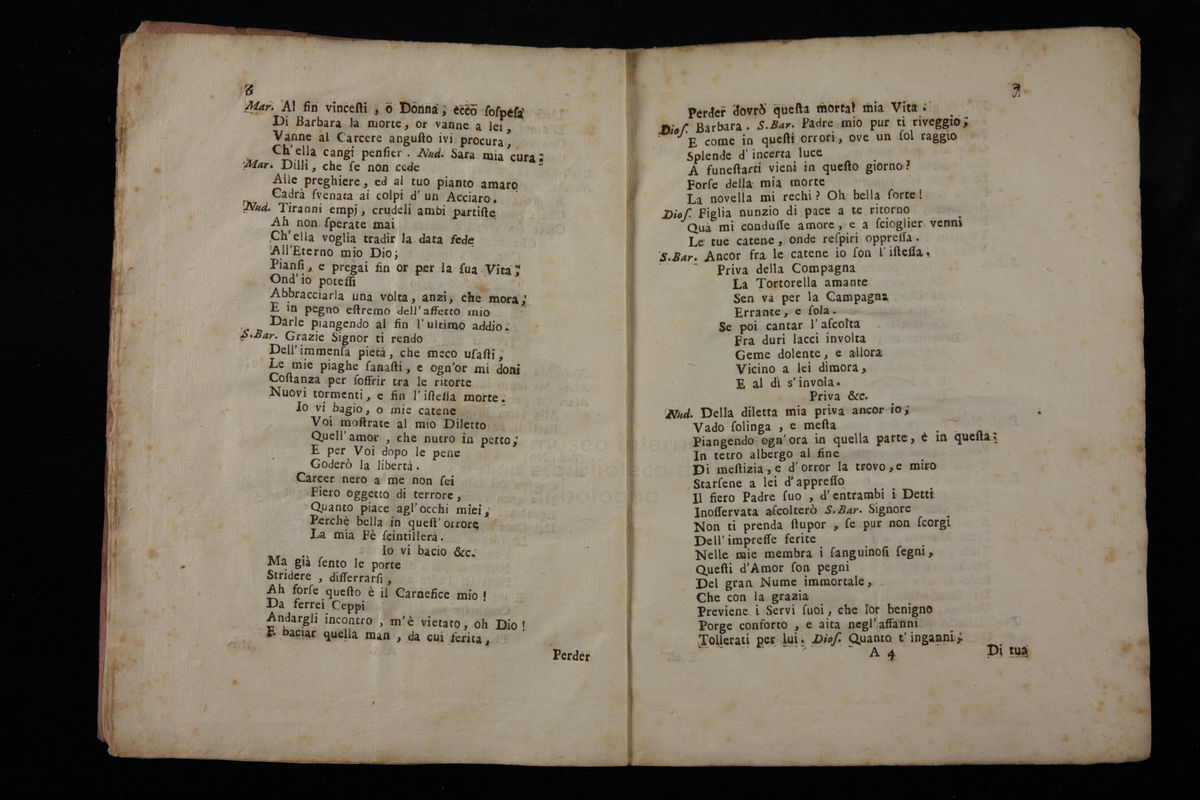 6
Mar. Al fin vinceſti, o Donna, ecco ſoſpeſa
Di Barbara la morte, or vanne a lei,
Vanne al Carcere anguſto ivi procura,
Ch'ella cangi penſier. Nud. Sara mia cura;
Mar. Dilli, che ſe non cede
Alle preghiere, ed al tuo pianto amaro
Cadrà ſvenata ai colpi d'un Acciaro.
Nud. Tiranni empj, crudeli ambi partiſte
Ah non ſperate mai
Ch'ella voglia tradir la data fede
All'Eterno mio Dio;
Pianſi, e pregai fin or per la ſua Vita;
Ond'io poteſſi
Abbracciarla una volta, anzi, che mora;
E in pegno eſtremo dell'affetto mio
Darle piangendo al fin l'ultimo addio.
S.Bar. Grazie Signor ti rendo
Dell'immenſa pietà, che meco uſaſti,
Le mie piaghe ſanaſti, e ogn'or mi doni
Coſtanza per ſoffrir tra le ritorte
Nuovi tormenti, e fin l'iſteſſa morte.
Io vi bagio, o mie catene
Voi moſtrate al mio Diletto
Quell'amor, che nutro in petto;
E per Voi dopo le pene
Goderò la libertà.
Carcer nero a me non ſei
Fiero oggetto di terrore,
Quanto piace agl'occhi miei;
Perchè bella in queſt'orrore
La mia Fè ſcintillerà.
Io vi bacio &c.
Ma già ſento le porte
Stridere, diſferrarſi,
Ah forſe queſto è il Carnefice mio!
Da ferrei Ceppi
Andargli incontro, m'è vietato, oh Dio!
E baciar quella man, da cui ferita,
Perder
7
Perder dovrò queſta mortal mia Vita.
Dioſ. Barbara. S.Bar. Padre mio pur ti riveggio;
E come in queſti orrori, ove un ſol raggio
Splende d'incerta luce
A funeſtarti vieni in queſto giorno?
Forſe della mia morte
La novella mi rechi? Oh bella ſorte!
Dioſ. Figlia nunzio di pace a te ritorno
Quà mi conduſſe amore, e a ſcioglier venni
Le tue catene, onde reſpiri oppreſſa.
S.Bar. Ancor fra le catene io ſon l'iſteſſa.
Priva della Compagna
La Tortorella amante
Sen va per la Campagna
Errante, e ſola.
Se poi cantar l'aſcolta
Fra duri lacci involta
Geme dolente, e allora
Vicino a lei dimora,
E al dì s'invola.
Priva &c.
Nud. Della diletta mia priva ancor io;
Vado ſolinga, e meſta
Piangendo ogn'ora in quella parte, e in queſta;
In tetro albergo al fine
Di meſtizia, e d'orror la trovo, e miro
Starſene a lei d'appreſſo
Il fiero Padre ſuo, d'entrambi i Detti
Inoſſervata aſcolterò S.Bar. Signore
Non ti prenda ſtupor, ſe pur non ſcorgi
Dell'impreſſe ferite
Nelle mie membra i ſanguinoſi ſegni,
Queſti d'Amor ſon pegni
Del gran Nume immortale,
Che con la grazia
Previene i Servi ſuoi, che lor benigno
Porge conforto, e aita negl'affanni
Tollerati per lui. Dioſ. Quanto t'inganni;
A 4
Di tua